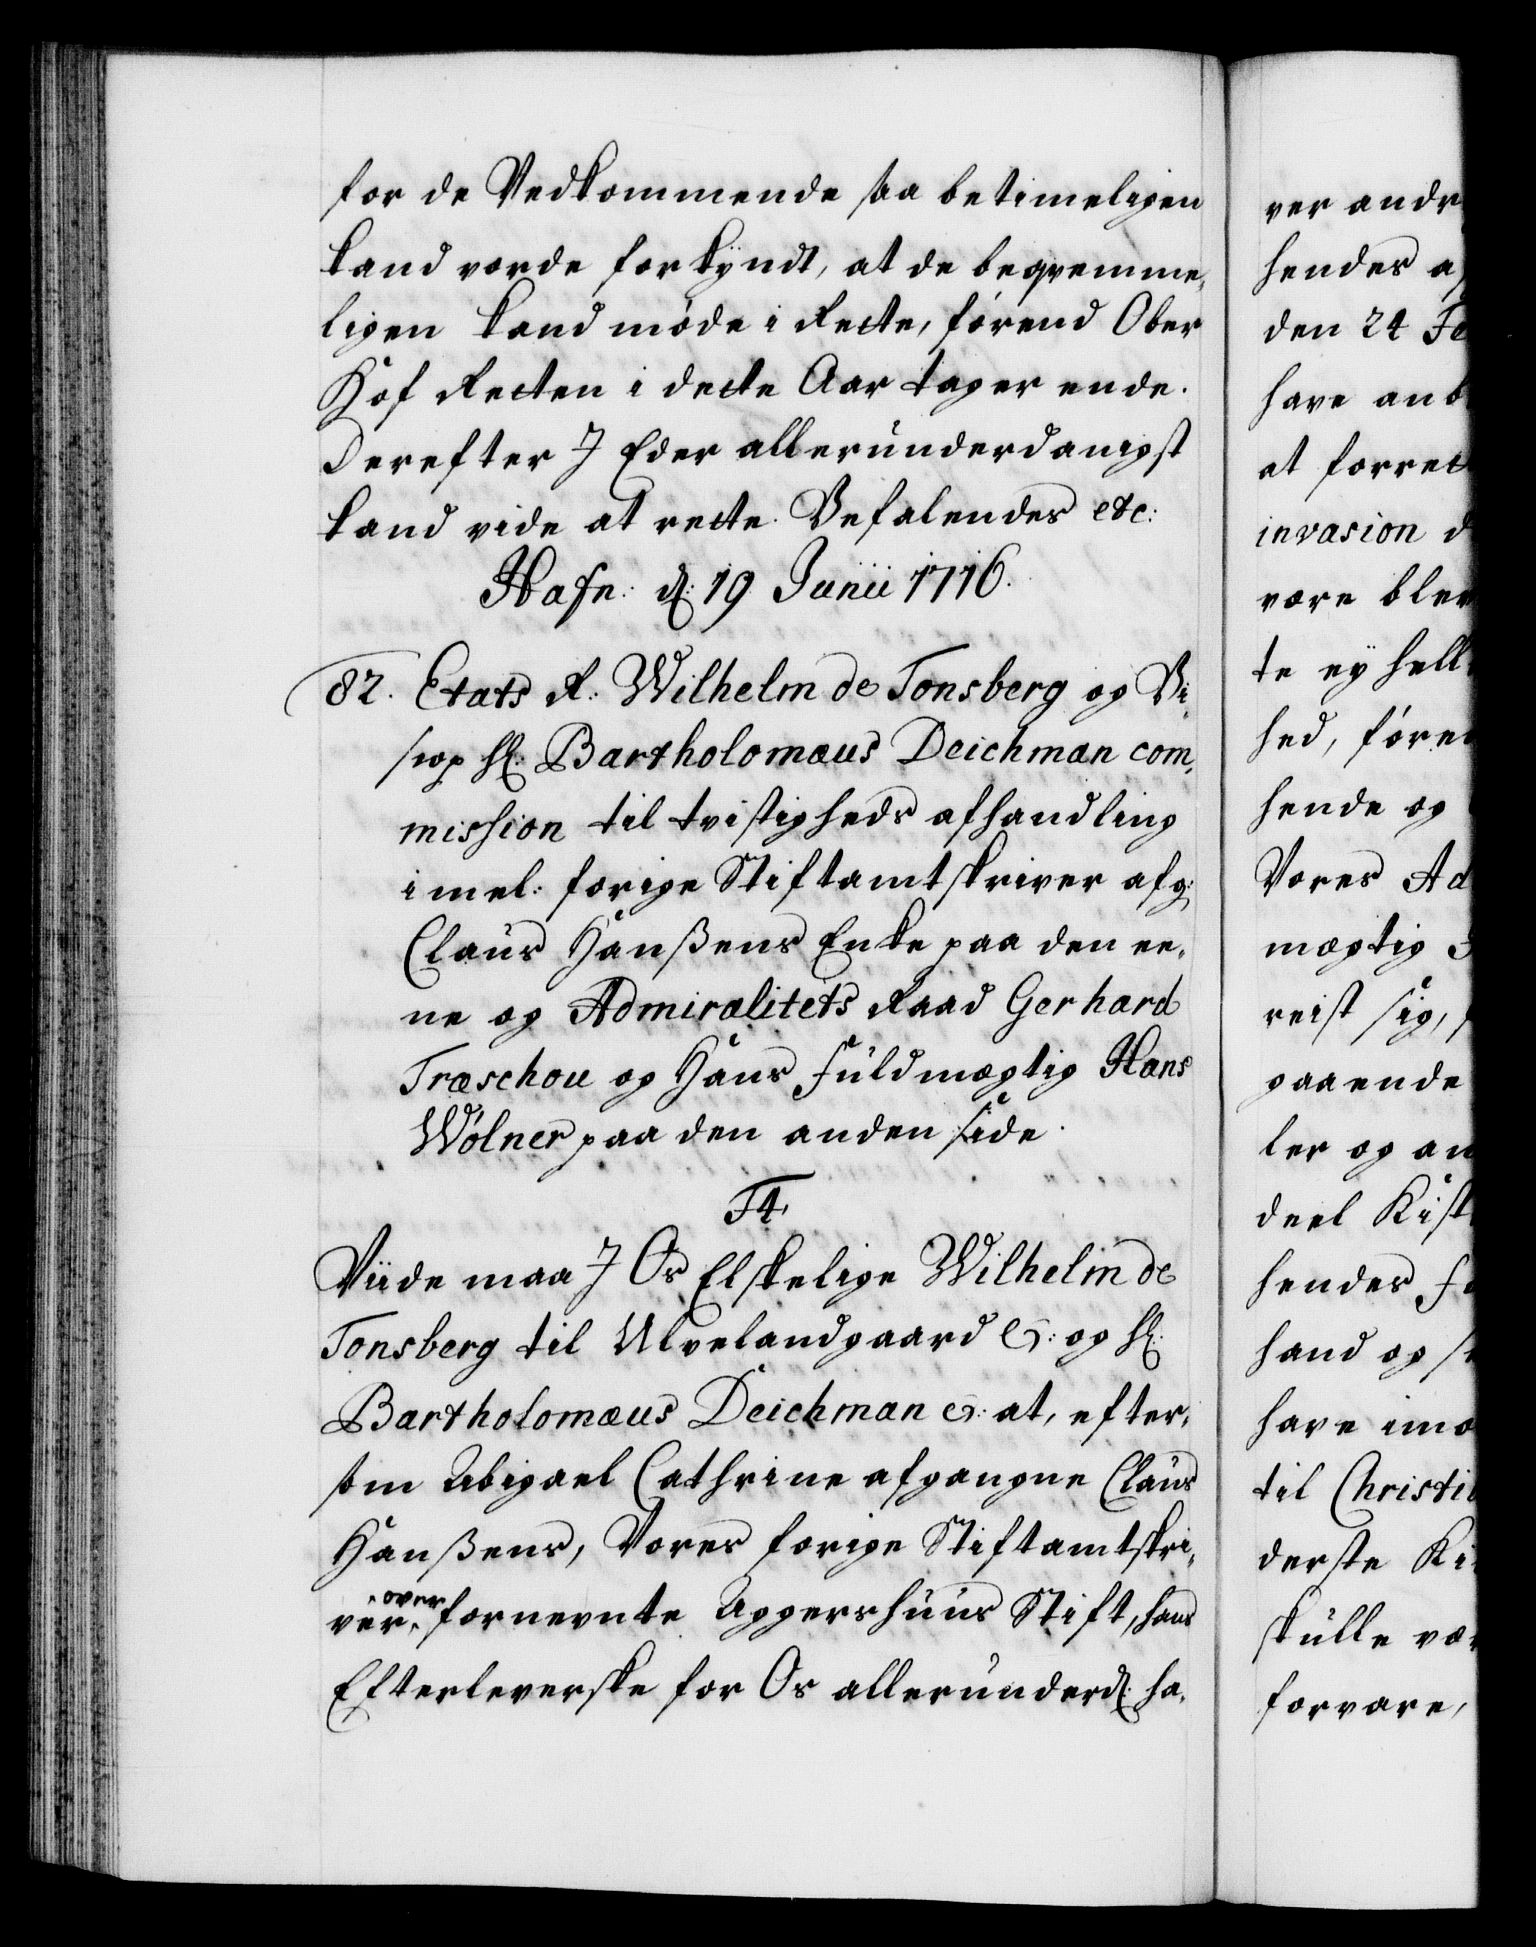 for de Vedkommende saa betimeligen
kand vorde forkyndt, at de beqvemme,
ligen kand møde i Rette, førend Ober
Hof Retten i dette Aar tager ende.
Derefter I Eder allerunderdanigst
kand vide at rette. Befalendes etc:
Hafn: d: 19 Junii 1716.
82. Etats R: Wilhelm de Tonsberg og Bi,
scop Hr: Bartholomæus Deichman com,
mission til tvistigheds afhandling
imel: forige Stiftamtskriver afg:
Claus Hanßens Enke paa den ee,
ne og Admiralitets Raad Gerhard
Træschou og Hans Fuldmægtig Hans
Wölner paa den anden side.
F4.
Viide maa I Os Elskelige Wilhelm de
Tonsberg til Ulvelandgaard &: og Hr:
Bartholomæus Deichman &: at, efter,
som Abigael Cathrine afgangne Claus
Hanßens, Vores forige Stiftamtskri,
ver over fornevnte Aggershuus Stift, hans
Efterleverske for Os allerunderd: ha,
ver andr
hendes a
den 24 Fe
have anb
at forret
invasion d
være blev
te ey hell
hed, føre
hende og
Vores Ad
mægtig
reist sig,
gaaende
ler og an
deel Kist
hendes f
hand og s
have imo
til Christi
derste Ki
skulle væ
forvare,